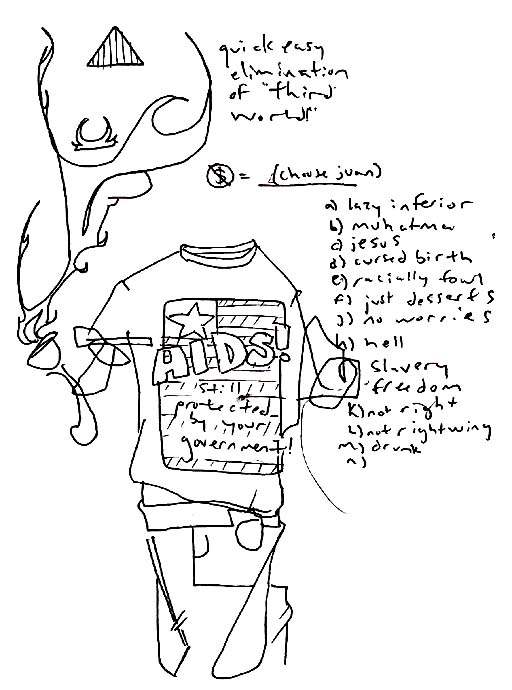 quick easy
elimination
of "third
world"
$ = (choose juan)
a) lazy inferior
b) muhatma
c) jesus
d) cursed birth
e) racially fowl
f) just desserts
g) no worries
h) hell
slavery
freedom
k) not right
l) not rightwing
m) drunk
n)
AIDS!
still
protected
by your
government!